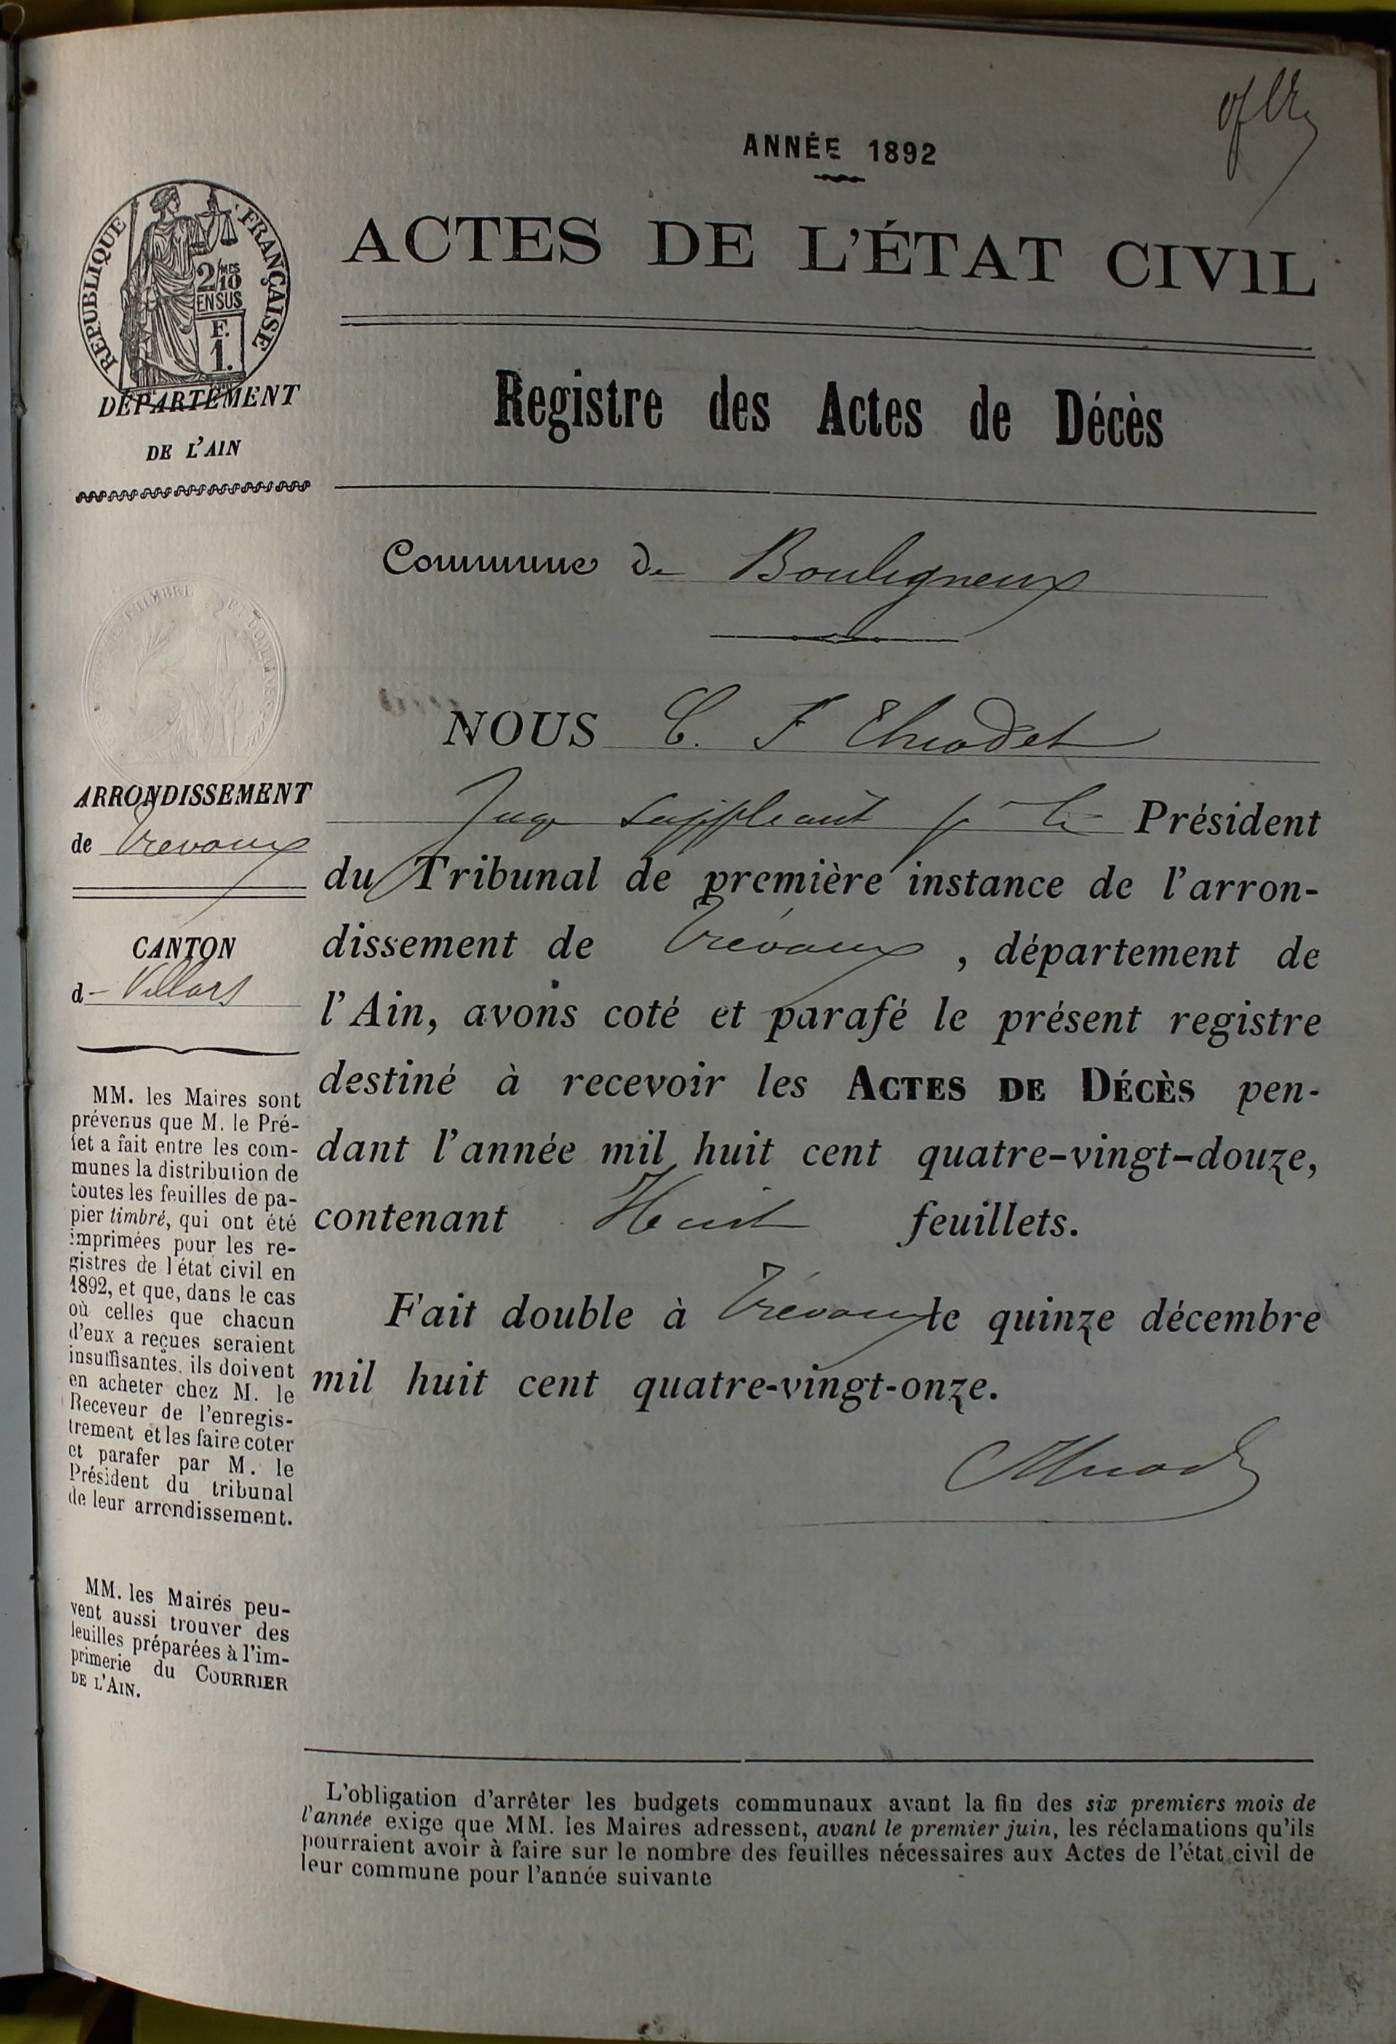 ANNÉE 1892
ACTES DE L'ÉTAT CIVIL
Registre des Actes de Décès
RÉPUBLIQUE FRANÇAISE
2/10 MES
EN SUS
F.
1.
DÉPARTEMENT
DE L'AIN
Commune de Bouligneux
NOUS C. F
Juge suppléant p. le Président
du Tribunal de première instance de l'arron-
dissement de Trévoux, département de
l'Ain, avons coté et parafé le présent registre
destiné à recevoir les ACTES DE DÉCÈS pen-
dant l'année mil huit cent quatre-vingt-douze,
contenant Huit feuillets.
Fait double à Trévoux le quinze décembre
mil huit cent quatre-vingt-onze.
ARRONDISSEMENT
de Trevoux
CANTON
d- Villars
MM. les Maires sont
prévenus que M. le Pré-
fet a fait entre les com-
munes la distribution de
toutes les feuilles de pa-
pier timbré, qui ont été
imprimées pour les re-
gistres de l'état civil en
1892, et que, dans le cas
où celles que chacun
d'eux a reçues seraient
insuffisantes, ils doivent
en acheter chez M. le
Receveur de l'enregis-
trement et les faire coter
et parafer par M. le
Président du tribunal
de leur arrondissement.
MM. les Maires peu-
vent aussi trouver des
feuilles préparées à l'im-
primerie du COURRIER
DE L'AIN.
L'obligation d'arrêter les budgets communaux avant la fin des six premiers mois de
l'année exige que MM. les Maires adressent, avant le premier juin, les réclamations qu'ils
pourraient avoir à faire sur le nombre des feuilles nécessaires aux Actes de l'état civil de
leur commune pour l'année suivante